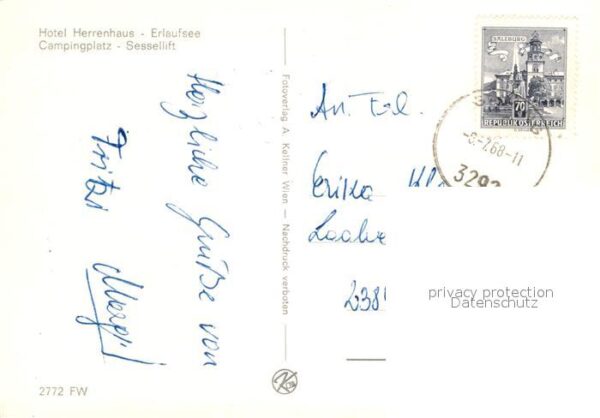 Hotel Herrenhaus - Erlaufsee
Campingplatz - Sessellift
Herzliche Grüße von
Fritzi
Fotoverlag A. Kellner Wien — Nachdruck verboten
2772 FW
SALZBURG
70
REPUBLIK ÖSTERREICH
-8.-7.68-11
An Frl.
Erika
238
privacy protection
Datenschutz